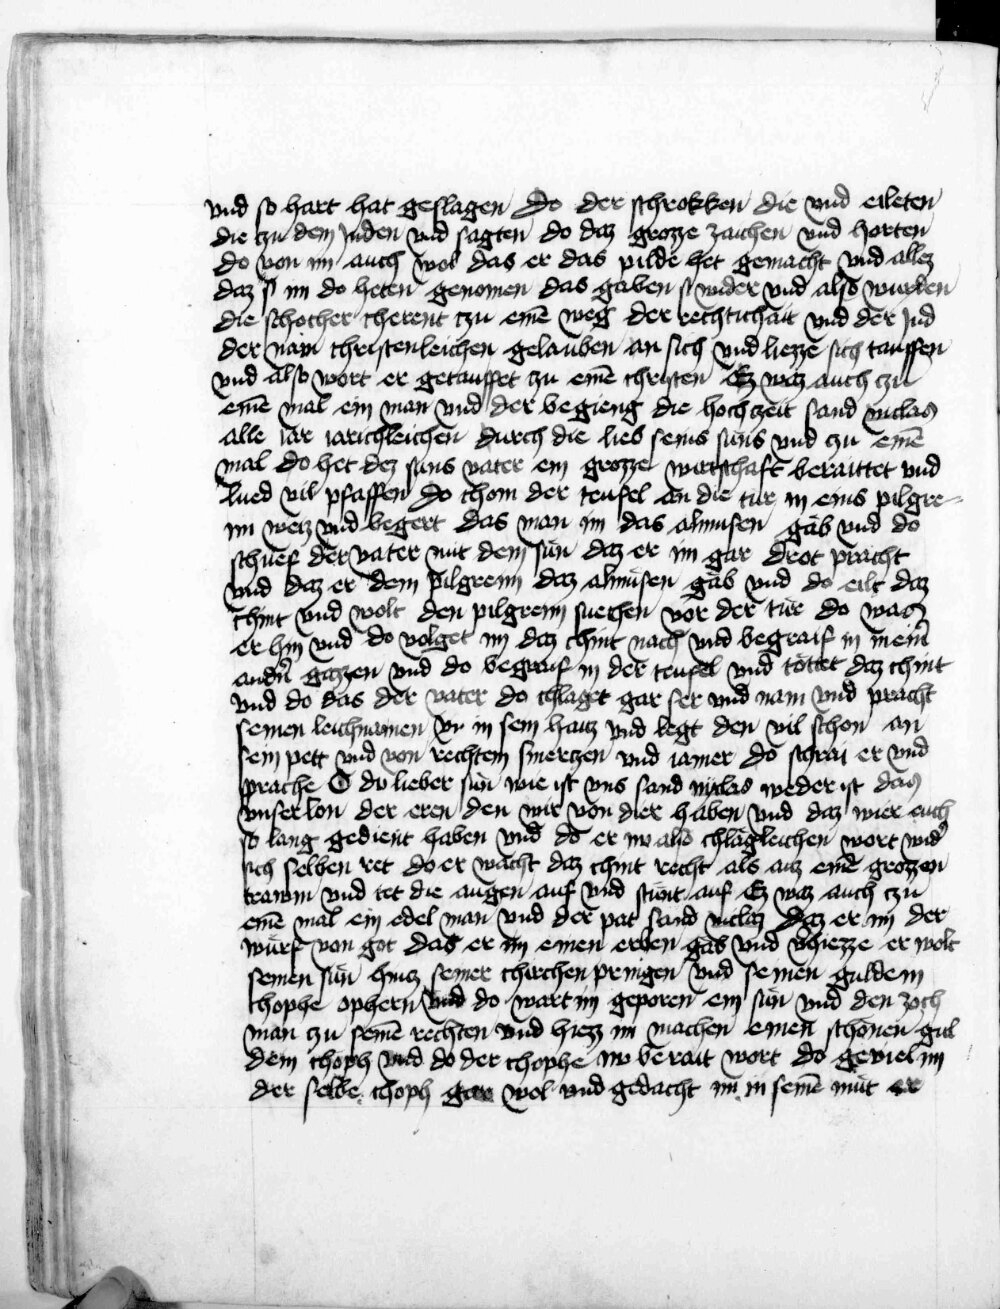 vnd so hart hat geslagen Do der schrokken die vnd eileten
die czu dem Juden vnd sagten do daz grozze zaichen vnd horten
do von im auch wol das er das pilde het gemacht vnd allez
daz si im do heten genomen das gaben si wider vnd also wurden
die schocher cherent czu eine weg der rechtichait vnd der Jud
der nam christenleichen gelauben an sich vnd liezze sich tauffen
vnd also wort er getauffet zu eine christen Ez waz auch czu
eine mal ein man vnd der begieng die hochzeit sand niclas
alle iar iarichleichen durch die lieb seins suns vnd zu eine
mal do het dez suns vater ein grozze wirtschaft beraittet vnd
lued vil pfaffen Do chom der teufel an die tur in eins pilgre-
im weiz vnd begert das man im das almusen gab vnd do
schuef der vater mit dem sun daz er im gar drot pracht
vnd daz er dem pilgreim daz almusen gab vnd do eilt daz
chint vnd wolt den pilgreim suechen vor der tur do was
er hin vnd do volget im daz chint nach vnd begraif in in ein
andn gazzen vnd do begraif in der teufel vnd tottet daz chint
vnd do das der vater do chlaget gar ser vnd nam vnd pracht
seinen leichnamen in sein hauz vnd legt den vil schon an
sein pett vnd von rechtem smertzen vnd iamer do schrai er vnd
sprache O du lieber sun wie ist vns sand niclas weder ist das
vnser lon der eren den wir von dier haben vnd daz wier euch
so lang gedient haben vnd do er nw also chlagleichen wort wid
sich selben ret do er wacht daz chint recht als auz eine grozzen
trawm vnd tet die augen auf vnd stuent auf Ez waz auch czu
eine mal ein edel man vnd der pat sand niclaz daz er im der
wurf von got das er im einen erben gab vnd vhiezze er wolt
seinen sun hincz seiner chirchen pringen vnd seinen guldein
chophe ophern vnd do wart im geporen ein sun vnd den zoch
man zu seine rechten vnd hiezz im machen einen schonen gul
dein choph vnd do der chophe nw berait wort do geviel im
der selbe choph gar wol vnd gedacht im in seine mut er